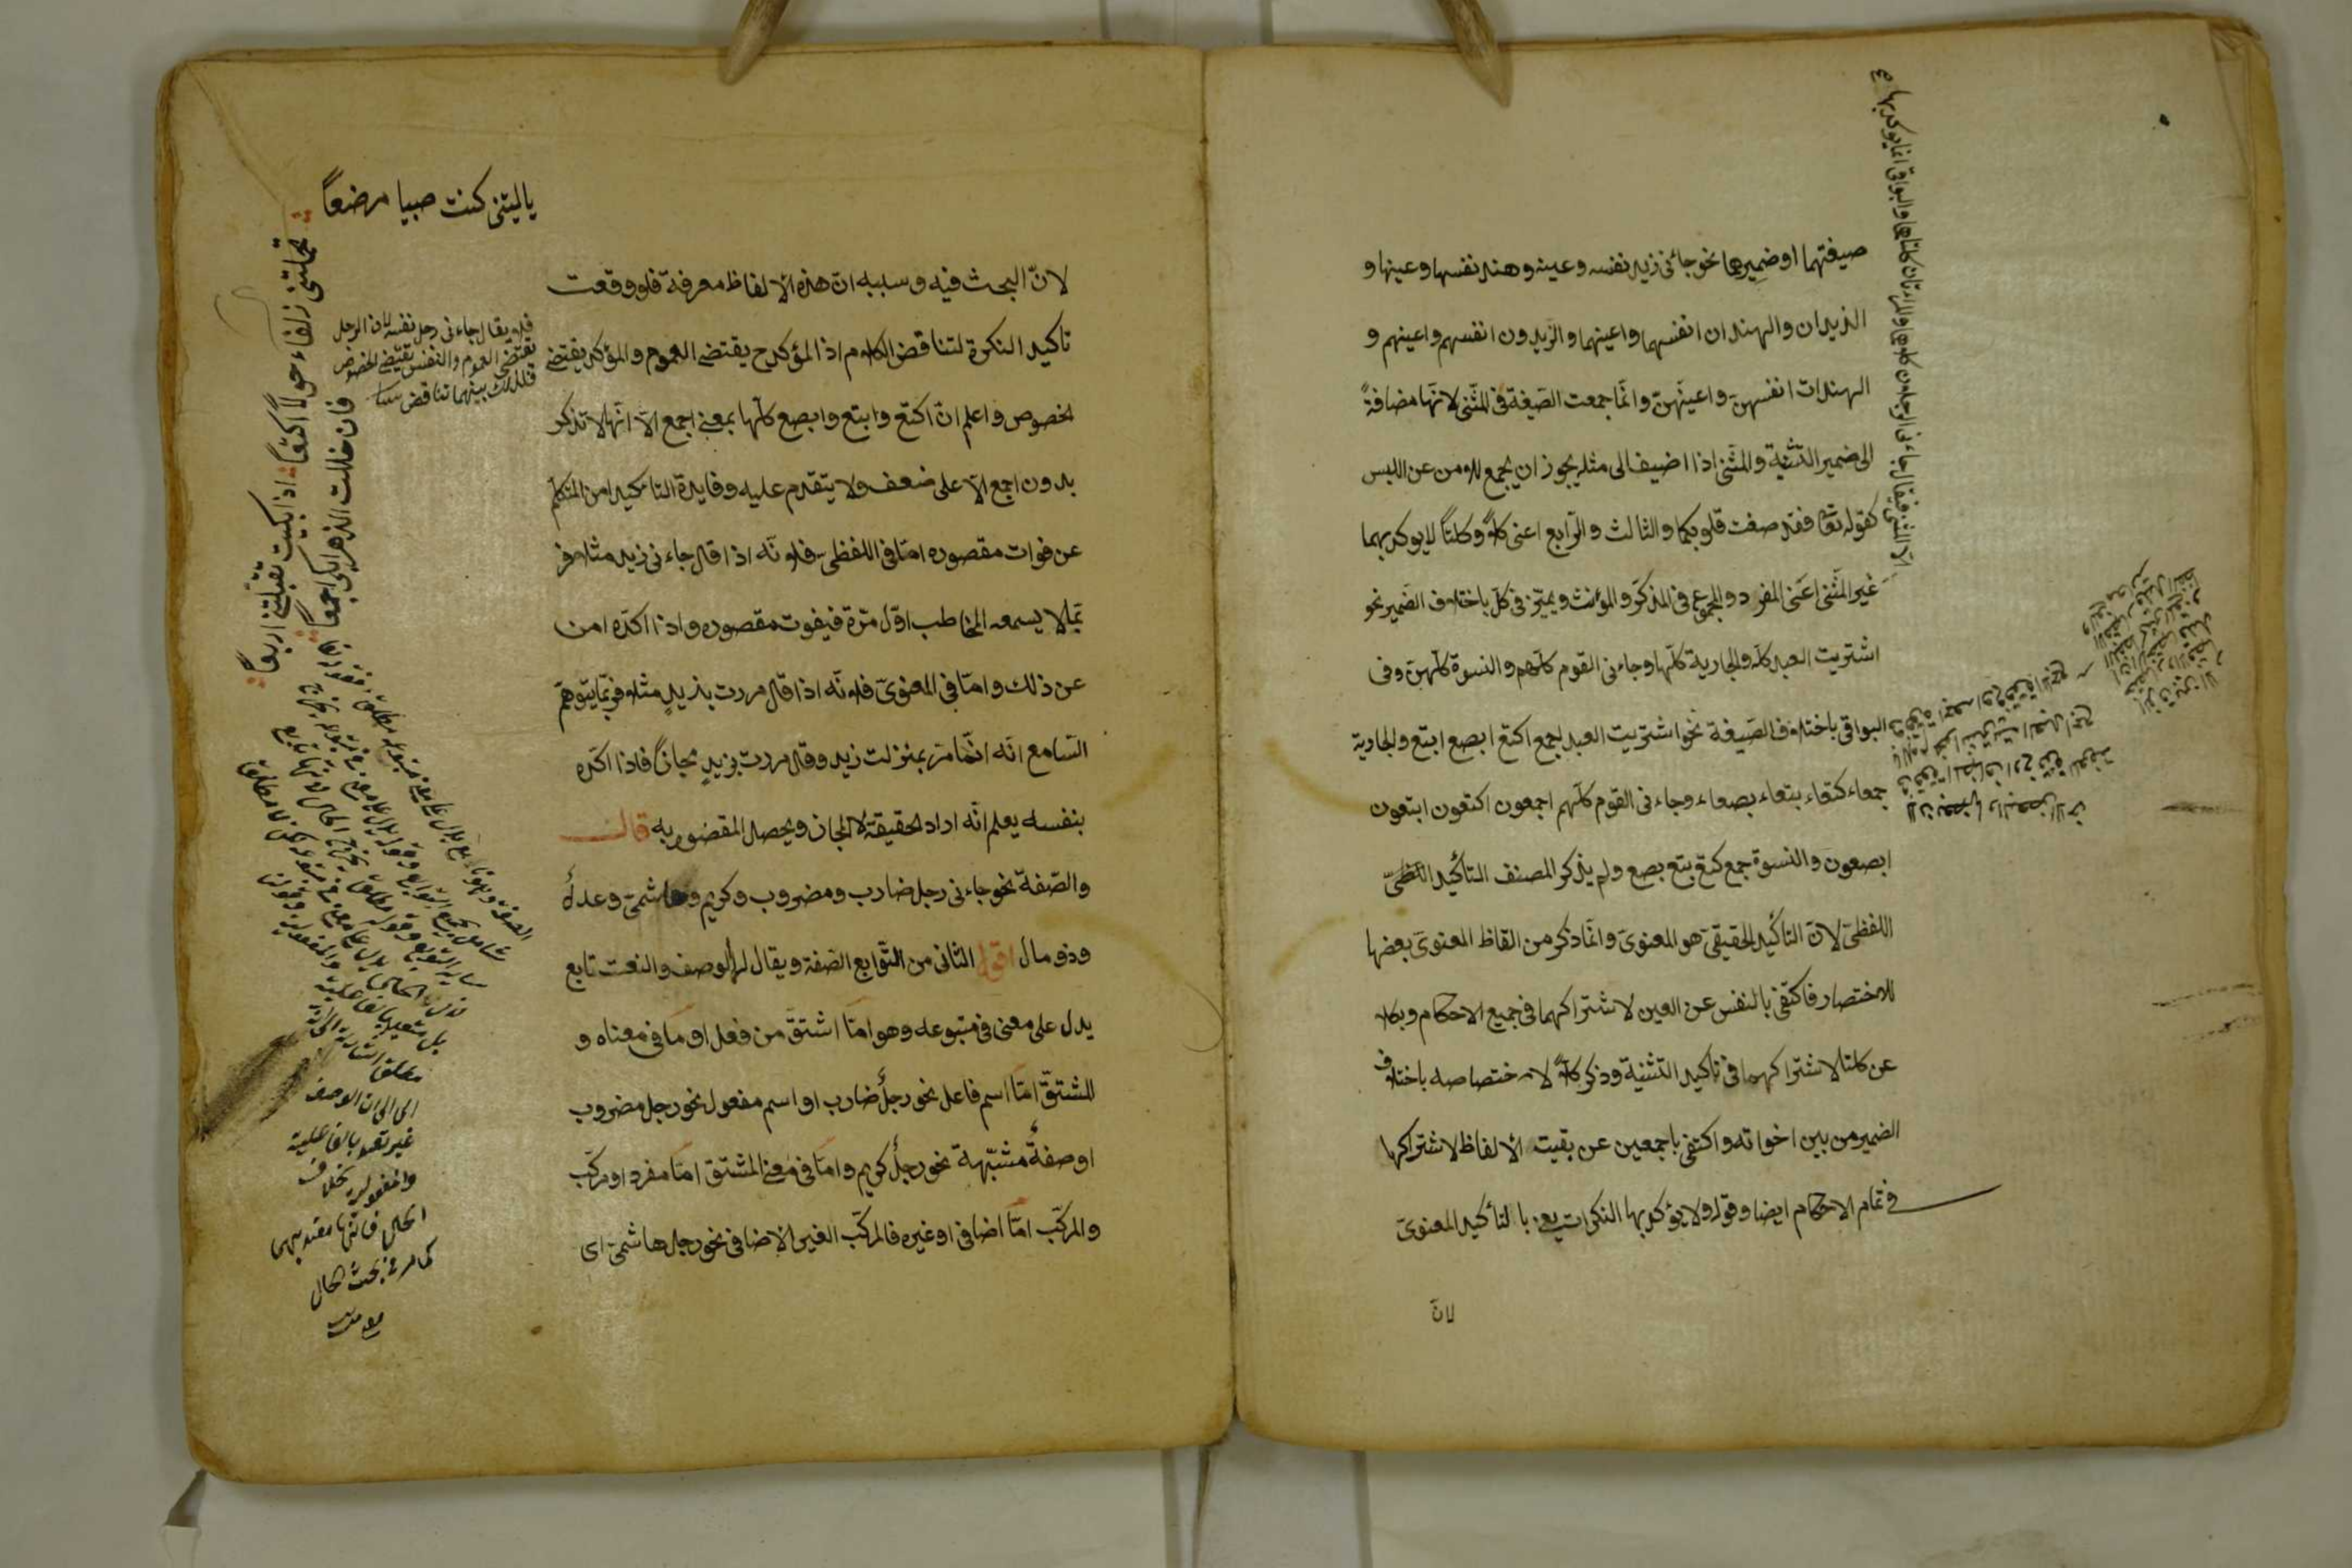 صيغتهما او ضميرها نحو جائنى زيد نفسه وعينه وهند نفسها وعينها و
الزيدان والهندان انفسهما واعينهما والزيدون انفسهم واعينهم و
الهندات انفسهنّ واعينهنّ وانّما جمعت الصّيغة فى المثنّى لانّها مضافةً
الى ضمير التّثنية والمثنّى اذا اضيف الى مثله يجوز ان يجمع للامن عن اللبس
كقوله تعالى فقد صغت قلوبكما والثالث والرّابع اعنى كلاًّ وكلتاً لايوكد بهما
غير المثنّى اعنى المفرد والمجموع فى المذكّر والمؤنث ويميّز فى كلّ باختلاف الضّمير نحو
اشتريت العبد كلّه والجارية كلّها وجاءنى القوم كلّهم والنسوة كلّهنّ وفى
البواقى باختلاف الصّيغة نحو اشتريت العبد اجمع اكتع ابصع ابتع والجارية
جمعاء كتعاء بتعاء بصعاء وجاءنى القوم كلّهم اجمعون اكتعون ابتعون
ابصعون والنسوة جمع كتع بتع بصع ولم يذكر المصنف التأكيد اللفظىّ
اللفظىّ لانّ التأكيد الحقيقىّ هو المعنوىّ وانّما ذكر من الفاظ المعنوىّ بعضها
للاختصار فاكتفى بالنفس عن العين لاشتراكهما فى جميع الاحكام وبكلا
عن كلتا لاشتراكهما فى تاكيد التّثنية وذكر كلاًّ لاختصاصه باختلاف
الضمير من بين اخواته واكتفى باجمعين عن بقيت الألفاظ لاشتراكها
فى تمام الاحكام ايضا وقوله ولايؤكد بها النكرات يعنى بالتأكيد المعنوىّ
لانّ
الّا المثنى فيقال جاءنى الرجلان كلاهما والمرأتان كلتاهما والبواقى انما يوكد بها
ياليتنى كنت صبيا مرضعاً
تحملنى زلفاء حولاً اكتعاً اذا بكيت تقبلنى اربعاً
فان ظللت الدهر ابكى اجمعاً
فلا يقال جاءنى رجل نفسه لان الرجل
تقتضى العموم والنفس تقتضى الخصوص
فلذلك بينهما تناقض
لانّ البحث فيه وسببه انّ هذه الألفاظ معرفة فلو وقعت
تاكيد النكرة لتناقض الكلام اذ المؤكد ح يقتضى العموم والمؤكد يقتضى
الخصوص واعلم انّ اكتع وابتع وابصع كلّها بمعنى اجمع الّا انّها لا تذكر
بدون اجمع الّا على ضعف ولا يتقدم عليه وفايدة التاكيد امن المتكلّم
عن فوات مقصوده امّا فى اللفظىّ فلانّه اذا قال جاءنى زيد مثلا فر
بّما لا يسمعه المخاطب اوّل مرّة فيفوت مقصوده واذا اكدّه امن
عن ذلك وامّا فى المعنوىّ فلانّه اذا قال مررت بزيدٍ مثلا فربّما يتوهّم
السّامع انّه انّما مرّ بمنزلت زيد وقال مررت بزيدٍ مجازاً فاذا اكدّه
بنفسه يعلم انّه اراد الحقيقة لا المجاز ويحصل المقصود به قال
والصّفة نحو جاءنى رجل ضارب ومضروب وكريم وهاشمىّ وعدلٌ
وذو مال اقول الثانى من التّوابع الصّفة ويقال لها الوصف والنعت تابع
يدل على معنى فى متبوعه وهو امّا اشتقّ من فعل او ما فى معناه و
المشتقّ امّا اسم فاعل نحو رجلٌ ضارب او اسم مفعول نحو رجل مضروب
او صفةٌ مشبّهة نحو رجلٌ كريم وامّا فى معنى المشتق امّا مفرد او مركّب
والمركّب امّا اضافى او غيره فالمركّب الغير الاضافى نحو رجل هاشمىّ اى
الى ان الوصف
غير مقيد بالفاعلية
والمفعولية بخلاف
الحال فانّها مقيد بهما
كما مر فى بحث الحال